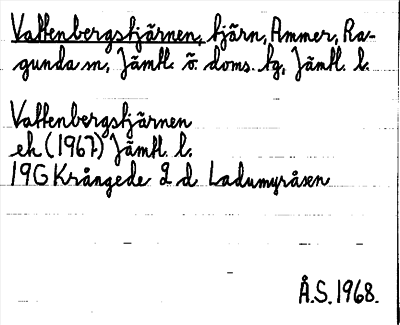 Vattenbergstjärnen, tjärn, Ammer, Ra-
gunda sn, Jämtl. ö. doms. lg, Jämtl. l.
Vattenbergstjärnen
ek (1967) Jämtl. l.
19G Krångede 2 d Ladumyråsen
Å.S. 1968.